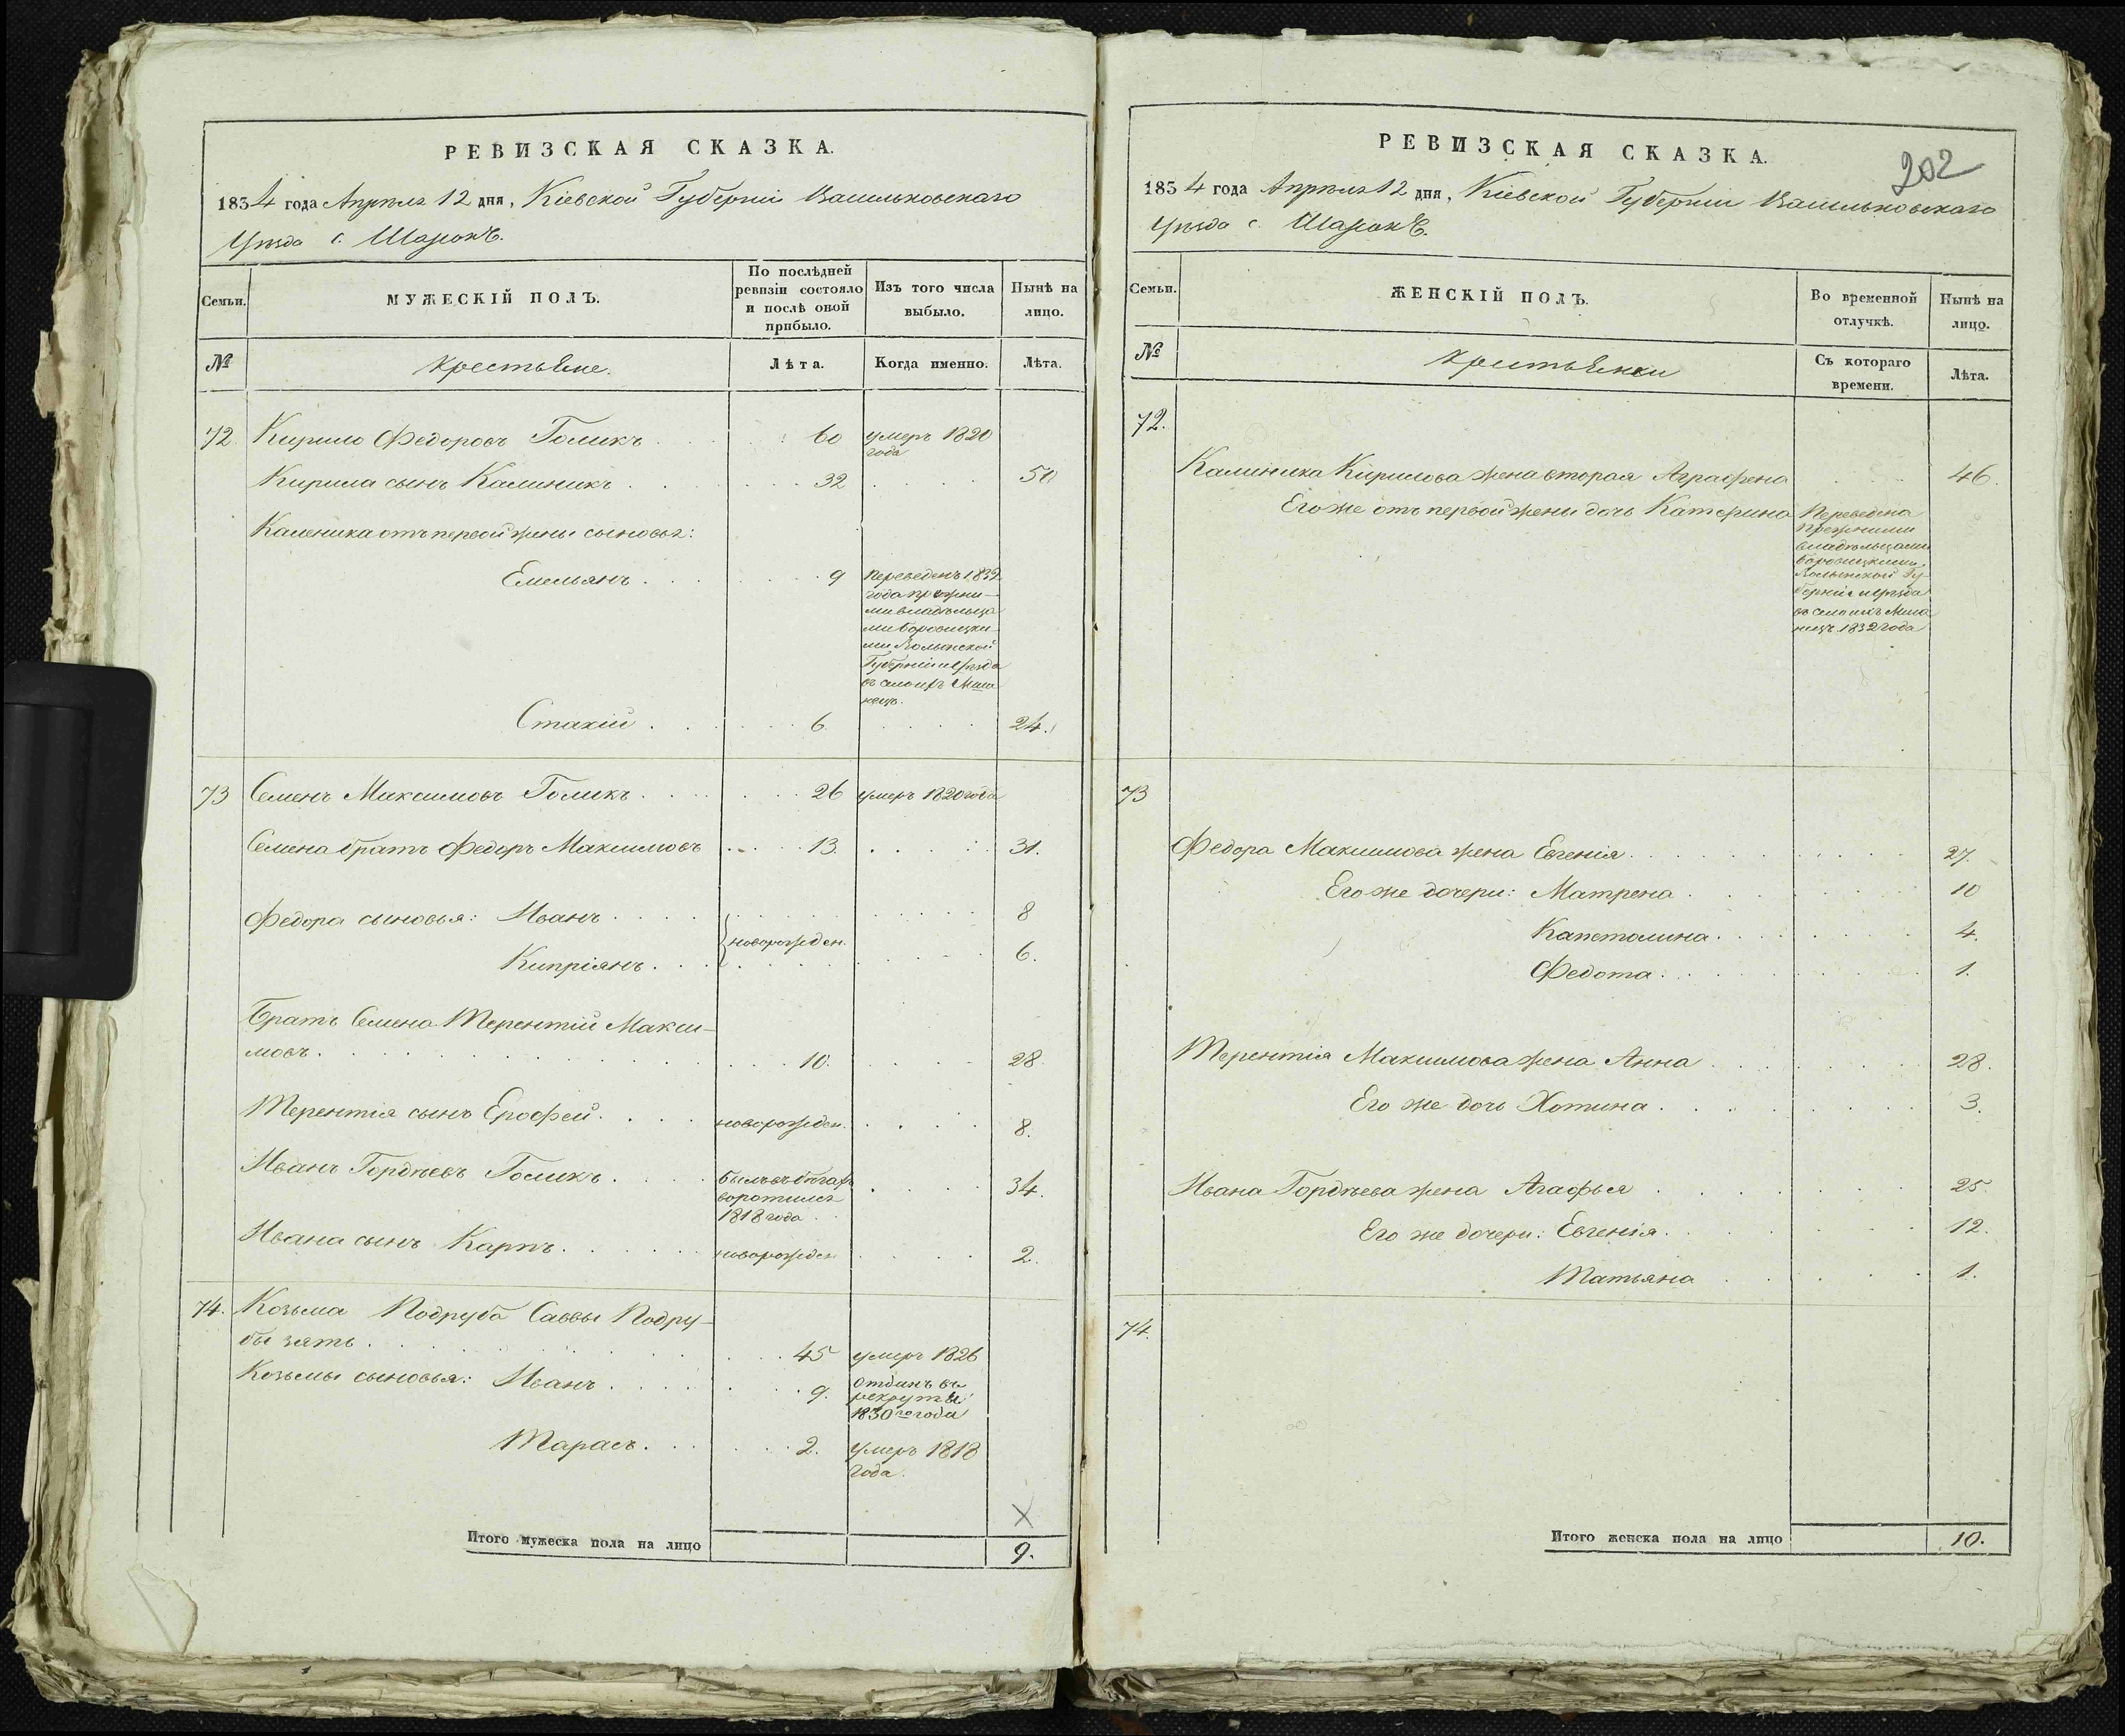 РЕВИЗСКАЯ СКАЗКА.
1834 года Апрѣля 12 дня, Кіевской Губерніи Васильковскаго
Уѣзда с.
Семьи.
МУЖЕСКІЙ ПОЛЪ.
По послѣдней
ревизіи состояло
и послѣ оной
прибыло.
Изъ того числа
выбыло.
Нынѣ на
лицо.
№
крестьяне.
Лѣта.
Когда именно.
Лѣта.
72. Кирило Федоровъ Голикъ 60 умеръ 1820
года
Кирила сынъ Калиникъ 32 50
Калиника отъ первой жены сыновья:
Емельянъ 9 переведенъ 1832
года прежни-
ми владѣльца
ми
ми Волынской
Губерніи и уѣзда
въ село ихъ
Стахій 6. 24.
73 Семенъ Максимовъ Голикъ 26 умеръ 1820 года
Семена братъ Федоръ Максимовъ 13. 31.
Федора сыновья: Иванъ 8
новорожден.
Кипріянъ 6.
Братъ Семена Терентій Макси-
мовъ 10. 28.
Терентія сынъ Ерофей новорожден. 8.
Иванъ Гордѣевъ Голикъ былъ въ бѣгах 34.
воротился
1818 года
Ивана сынъ Карпъ новорожден 2.
74. Козьма Подруба Саввы Подру-
бы зять 45 умеръ 1826
Козьмы сыновья: Иванъ 9. отданъ въ
рекруты
1830го года
Тарасъ 2. умеръ 1818
года.
Итого мужеска пола на лицо 9.
РЕВИЗСКАЯ СКАЗКА.
202
1834 года Апрѣля 12 дня, Кіевской Губерніи Васильковскаго
Уѣзда с.
Семьи.
ЖЕНСКІЙ ПОЛЪ.
Во временной
отлучкѣ.
Нынѣ на
лицо.
№
крестьянки
Съ котораго
времени.
Лѣта.
72.
Калиника Кирилова жена вторая Аграфена 46.
Его же отъ первой жены дочь Катерина Переведена
прежними
владѣльцами
Волынской Гу-
берніи и уѣзда
въ село ихъ
1832 года
73
Федора Максимова жена Евгенія 27.
Его же дочери: Матрена 10
Капетолина 4.
Федота 1.
Терентія Максимова жена Анна 28.
Его же дочь Хотина 3.
Ивана Гордѣева жена Агафья 25.
Его же дочери: Евгенія 12.
Татьяна 1.
74.
Итого женска пола на лицо 10.